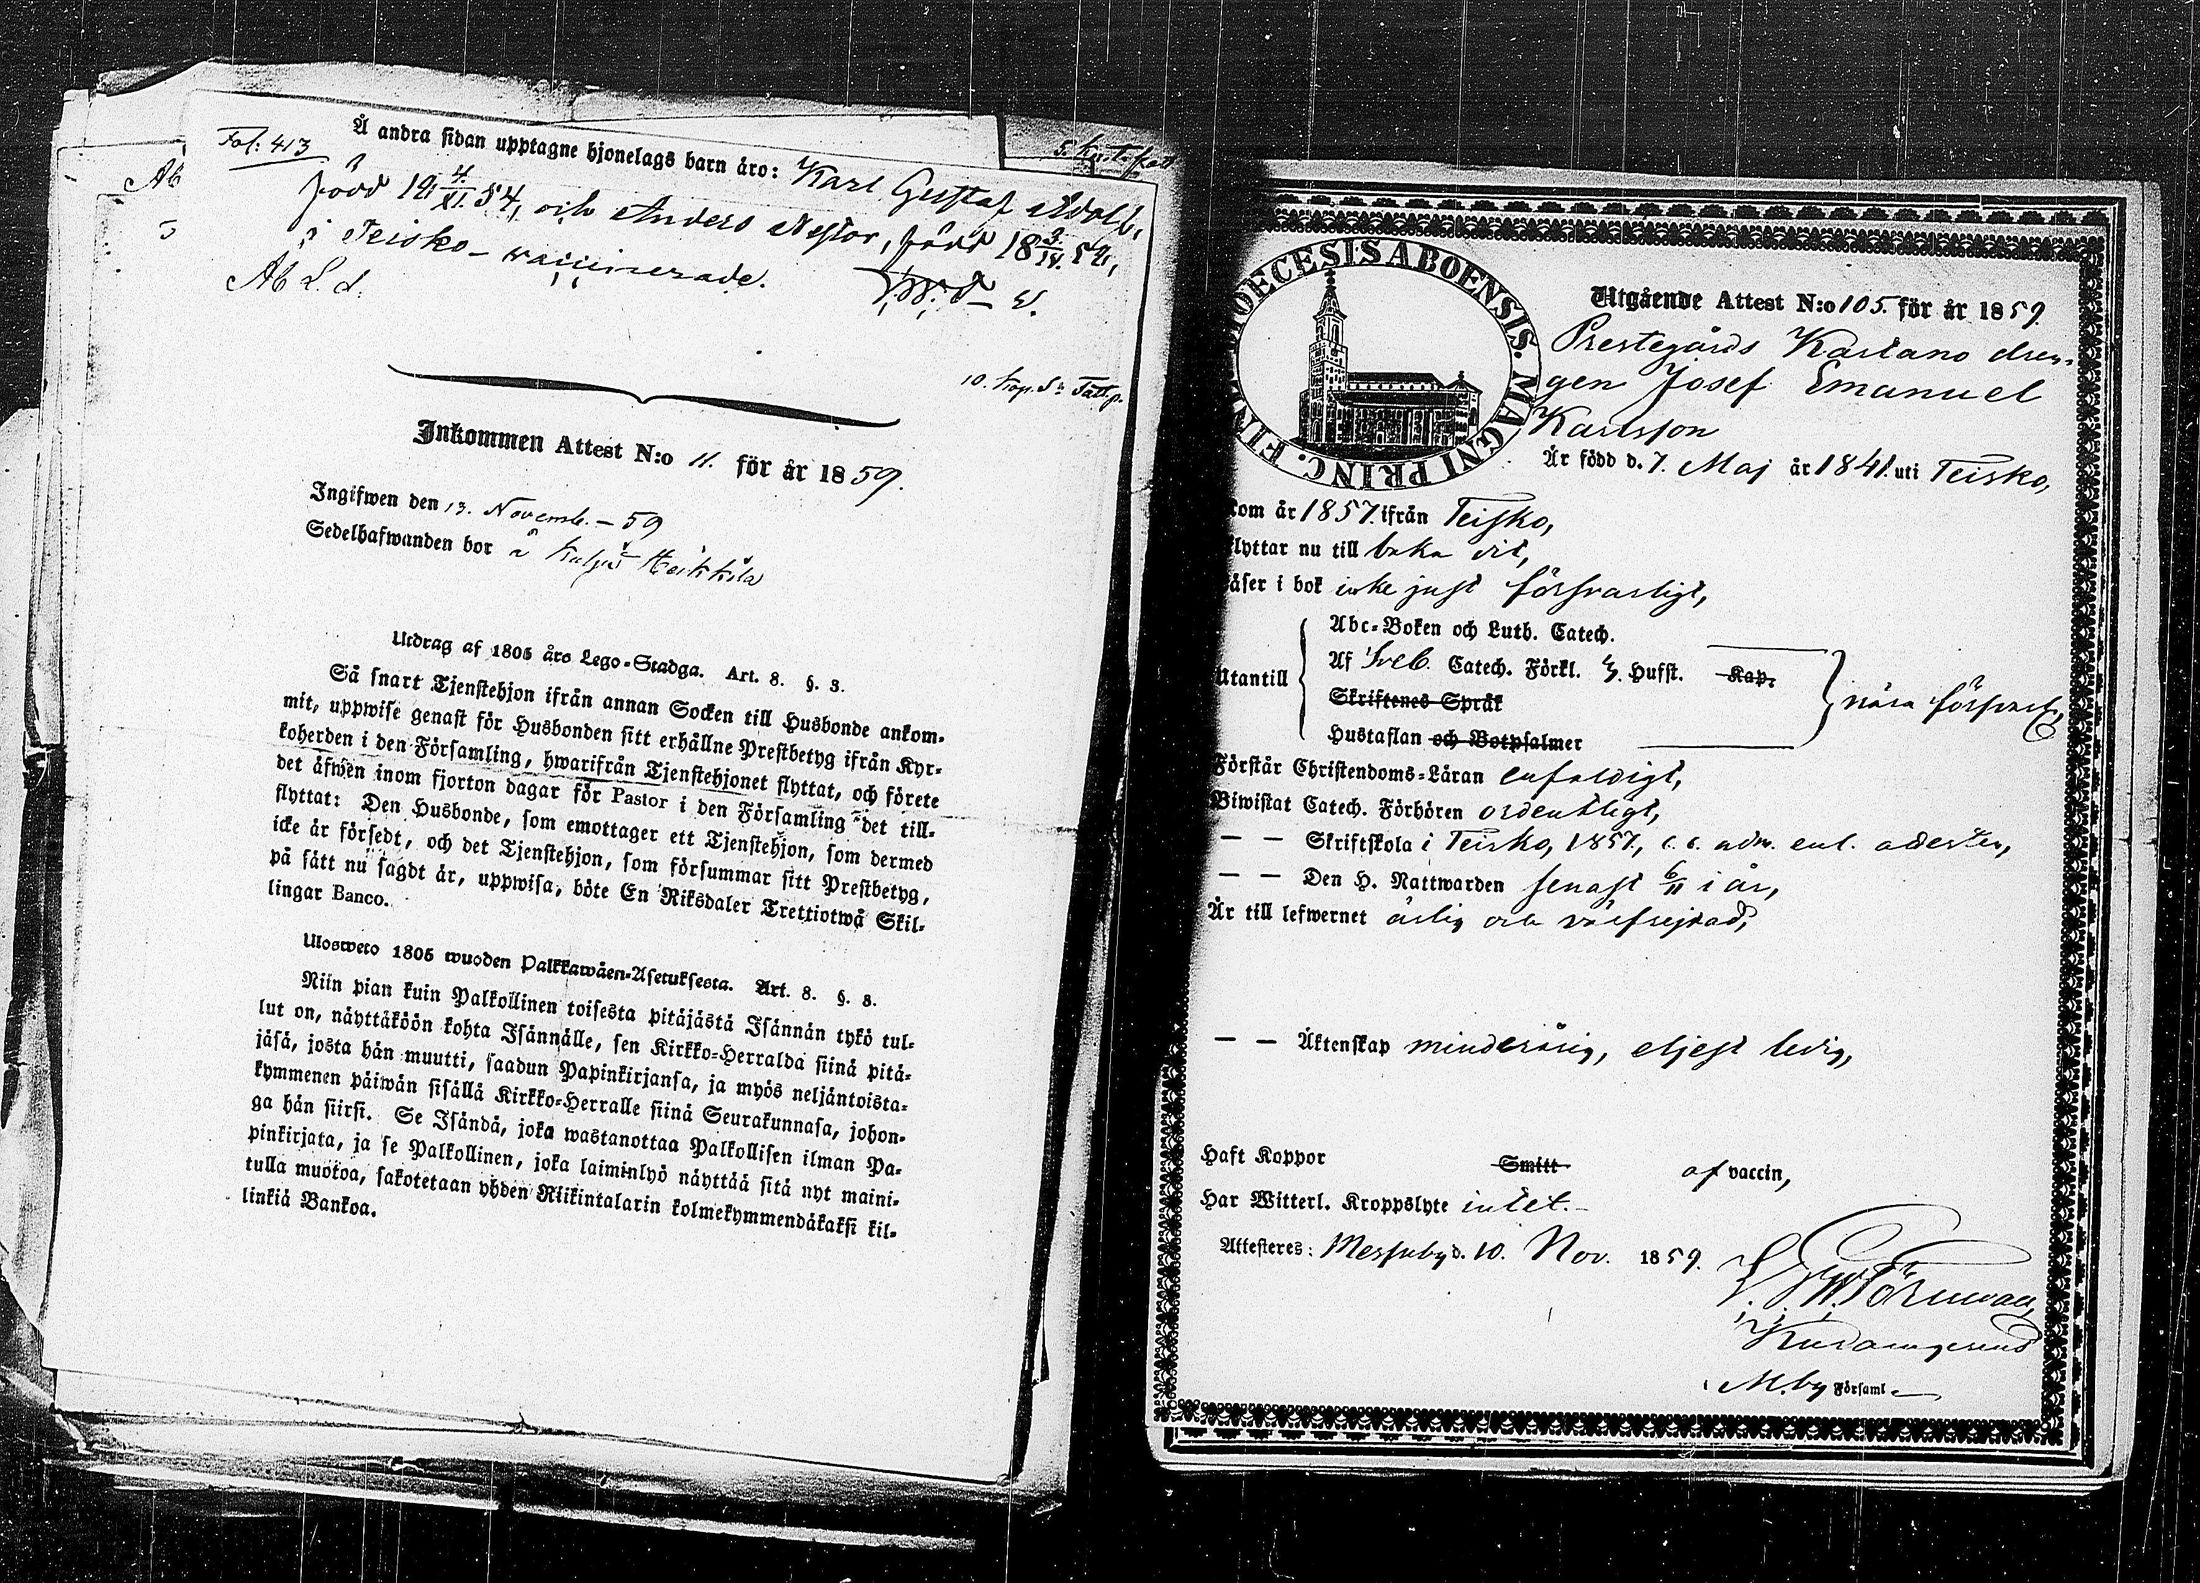 Fol: 413
Å andra sidan upptagne hjonelags barn äro: Karl Gustaf Adolf,
född 19 4/XI. 54, och Anders Nestor, född 18
i Teisko - vaccinerade.
10. kop. S:r
Inkommen Attest N:o 11. för år 1859.
Ingifwen den 13. Novemb. - 59
Sedelhafwanden bor å Heikkilä
Utdrag af 1805 års Lego-Stadga. Art. 8. §. 3.
Så snart Tjenstehjon ifrån annan Socken till Husbonde ankom-
mit, uppwise genast för Husbonden sitt erhållne Prestbetyg ifrån Kyr-
koherden i den Församling, hwarifrån Tjenstehjonet flyttat, och förete
det äfwen inom fjorton dagar för Pastor i den Församling det till-
flyttat: Den Husbonde, som emottager ett Tjenstehjon, som dermed
icke är försedt, och det Tjenstehjon, som försummar sitt Prestbetyg,
på sätt nu sagdt är, uppwisa, böte En Riksdaler Trettiotwå Skil-
lingar Banco.
Ulosweto 1805 wuoden Palkkawäen-Asetuksesta. Art. 8. §. 3.
Niin pian kuin Palkollinen toisesta pitäjästä Isännän tykö tul-
lut on, näyttäköön kohta Isännälle, sen Kirkko-Herralda siinä pitä-
jäsä, josta hän muutti, saadun Papinkirjansa, ja myös neljäntoista-
kymmenen päiwän sisällä Kirkko-Herralle siinä Seurakunnasa, johon-
ga hän siirsi. Se Isändä, joka wastanottaa Palkollisen ilman Pa-
pinkirjata, ja se Palkollinen, joka laiminlyö näyttää sitä nyt maini-
tulla muotoa, sakotetaan yhden Riikintalarin kolmekymmendäkaksi kil-
linkiä Bankoa.
DIOECESIS ABOENSIS. MAGNI PRINC. FINL.
Utgående Attest N:o 105. för år 1859.
Prestegårds Kastano dren-
gen Josef Emanuel
Karlsson
Är född d. 7. Maj år 1841. uti Teisko,
kom år 1857. ifrån Teisko,
flyttar nu till baka dit,
Läser i bok icke just försvarligt,
Abc-Boken och Luth. Catech.
Utantill Af Sveb. Catech. Förkl. Hufst. Kap.
Skriftenes Språk
Hustaflan och Botpsalmer
nära försvarl.
Förstår Christendoms-Läran enfaldigt,
Biwistat Catech. Förhören ordentligt,
— — Skriftskola i Teisko, 1857, adm. enl. attesten,
— — Den H. Nattwarden senast 6/11 i år,
Är till lefwernet ärlig och välfrejdad,
— — Äktenskap minderårig, eljest ledig,
Haft Koppor Smitt af vaccin,
Har Witterl. Kroppslyte intet.-
Attesteres: Messuby d. 10. Nov. 1859.
M.by Församl.